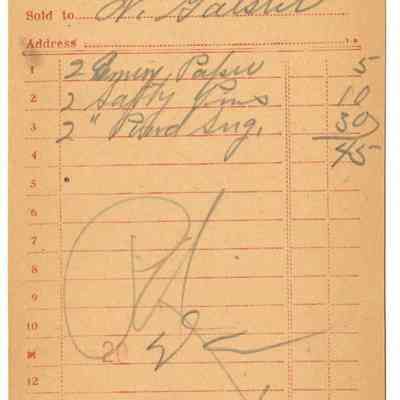 Sold to W. Galster
Address
1 2 Emery Paper 5
2 2 Safty Pins 10
3 2 " Sug. 30
4 45
5
6
7
8
9
10
20
12